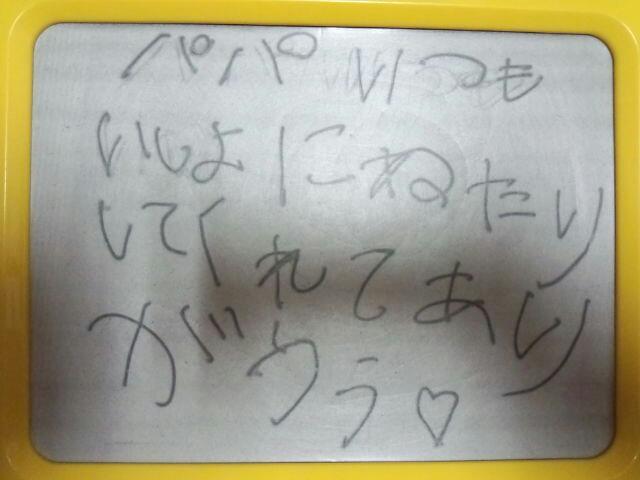 パパ いつも
いしょにねたり
してくれてあり
がとう♡